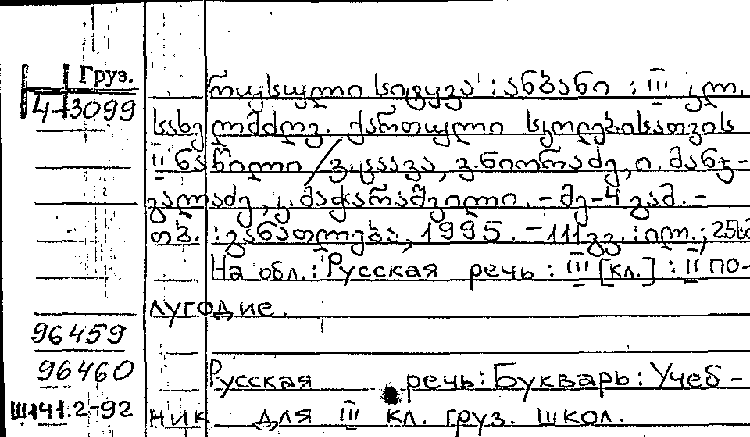 Груз.
4-3099
რუსული სიტყვა : ანბანი : III კლ.
სახელმძღვ. ქართული სკოლებისათვის
II ნაწილი / ვ. კაკავა, ვ. ნიორაძე, ი. მანჯ-
გალაძე, კ. მაქარაშვილი. - მე-4 გამ. -
თბ. : განათლება, 1995. - 111 გვ. : ილ.;
На обл.: Русская речь : III [кл.] : II по-
лугодие.
96459
96460
Русская речь : Букварь : Учеб-
ник для III кл. груз. школ.
2-92